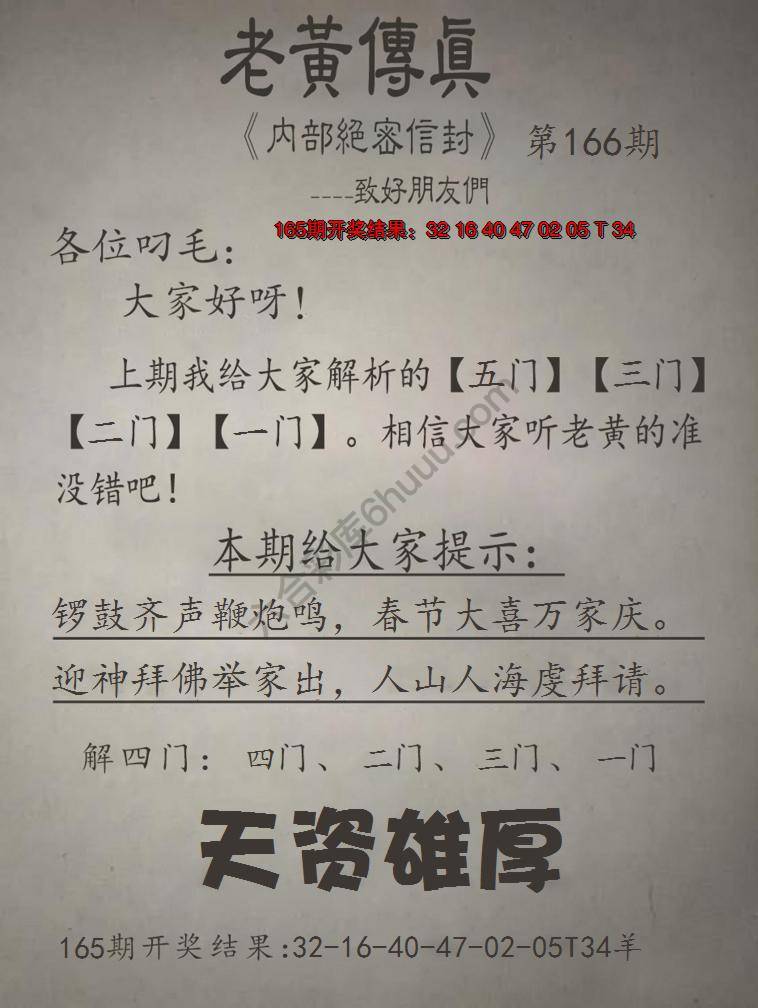 老黃傳眞
《内部絕密信封》 第166期
----致好朋友們
165期开奖结果：32 16 40 47 02 05 T 34
各位叼毛：
大家好呀！
上期我给大家解析的【五门】【三门】
【二门】【一门】。相信大家听老黄的准
没错吧！
六合彩库6huuu.com
本期给大家提示：
锣鼓齐声鞭炮鸣，春节大喜万家庆。
迎神拜佛举家出，人山人海虔拜请。
解四门：四门、二门、三门、一门
天资雄厚
165期开奖结果:32-16-40-47-02-05T34羊